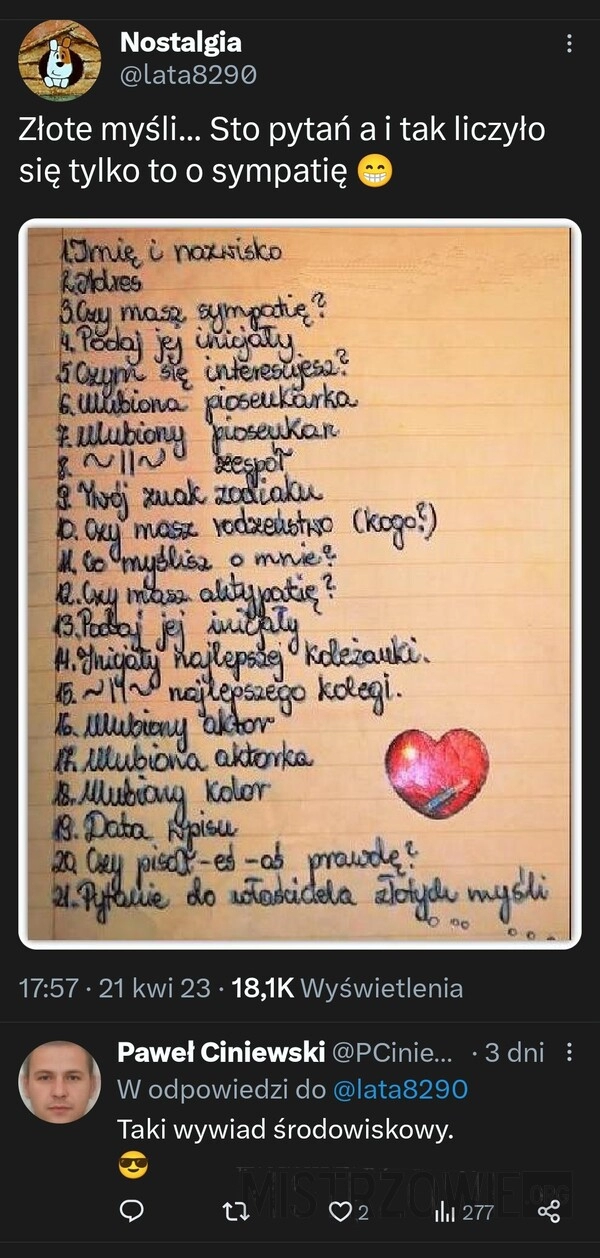 Nostalgia
@lata8290
Złote myśli... Sto pytań a i tak liczyło
się tylko to o sympatię 😁
1. Imię i nazwisko
2. Adres
3. Czy masz sympatię?
4. Podaj jej inicjały
5. Czym się interesujesz?
6. Ulubiona piosenkarka
7. Ulubiony piosenkarz
8. ~ || ~ zespół
9. Twój znak zodiaku
10. Czy masz rodzeństwo (kogo?)
11. Co myślisz o mnie?
12. Czy masz antypatię?
13. Podaj jej inicjały
14. Inicjały najlepszej koleżanki.
15. ~ || ~ najlepszego kolegi.
16. Ulubiony aktor
17. Ulubiona aktorka
18. Ulubiony kolor
19. Data wpisu
20. Czy pisał-eś -aś prawdę?
21. Pytanie do właściciela złotych myśli
17:57 · 21 kwi 23 · 18,1K Wyświetlenia
Paweł Ciniewski @PCinie... · 3 dni
W odpowiedzi do @lata8290
Taki wywiad środowiskowy.
😎
2 277
MISTRZOWIE.ORG